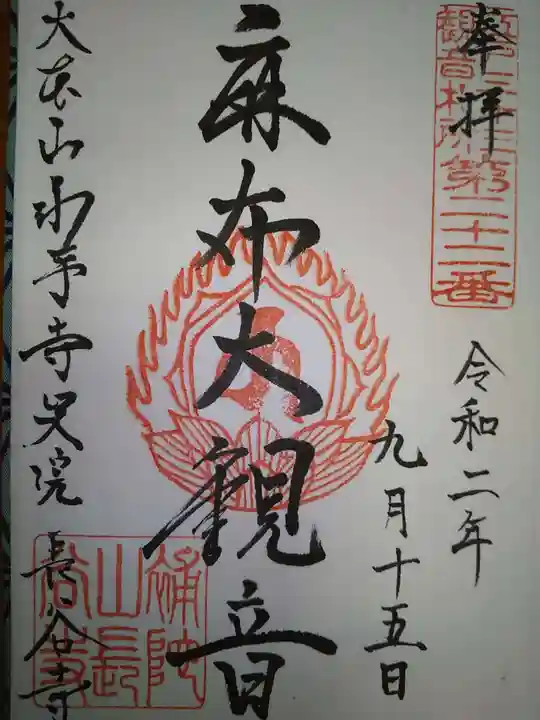 奉拝
観音札所第二十二番
令和二年
九月十五日
麻布大観音
大本山永平寺別院 長谷寺
補陀
山長
谷寺